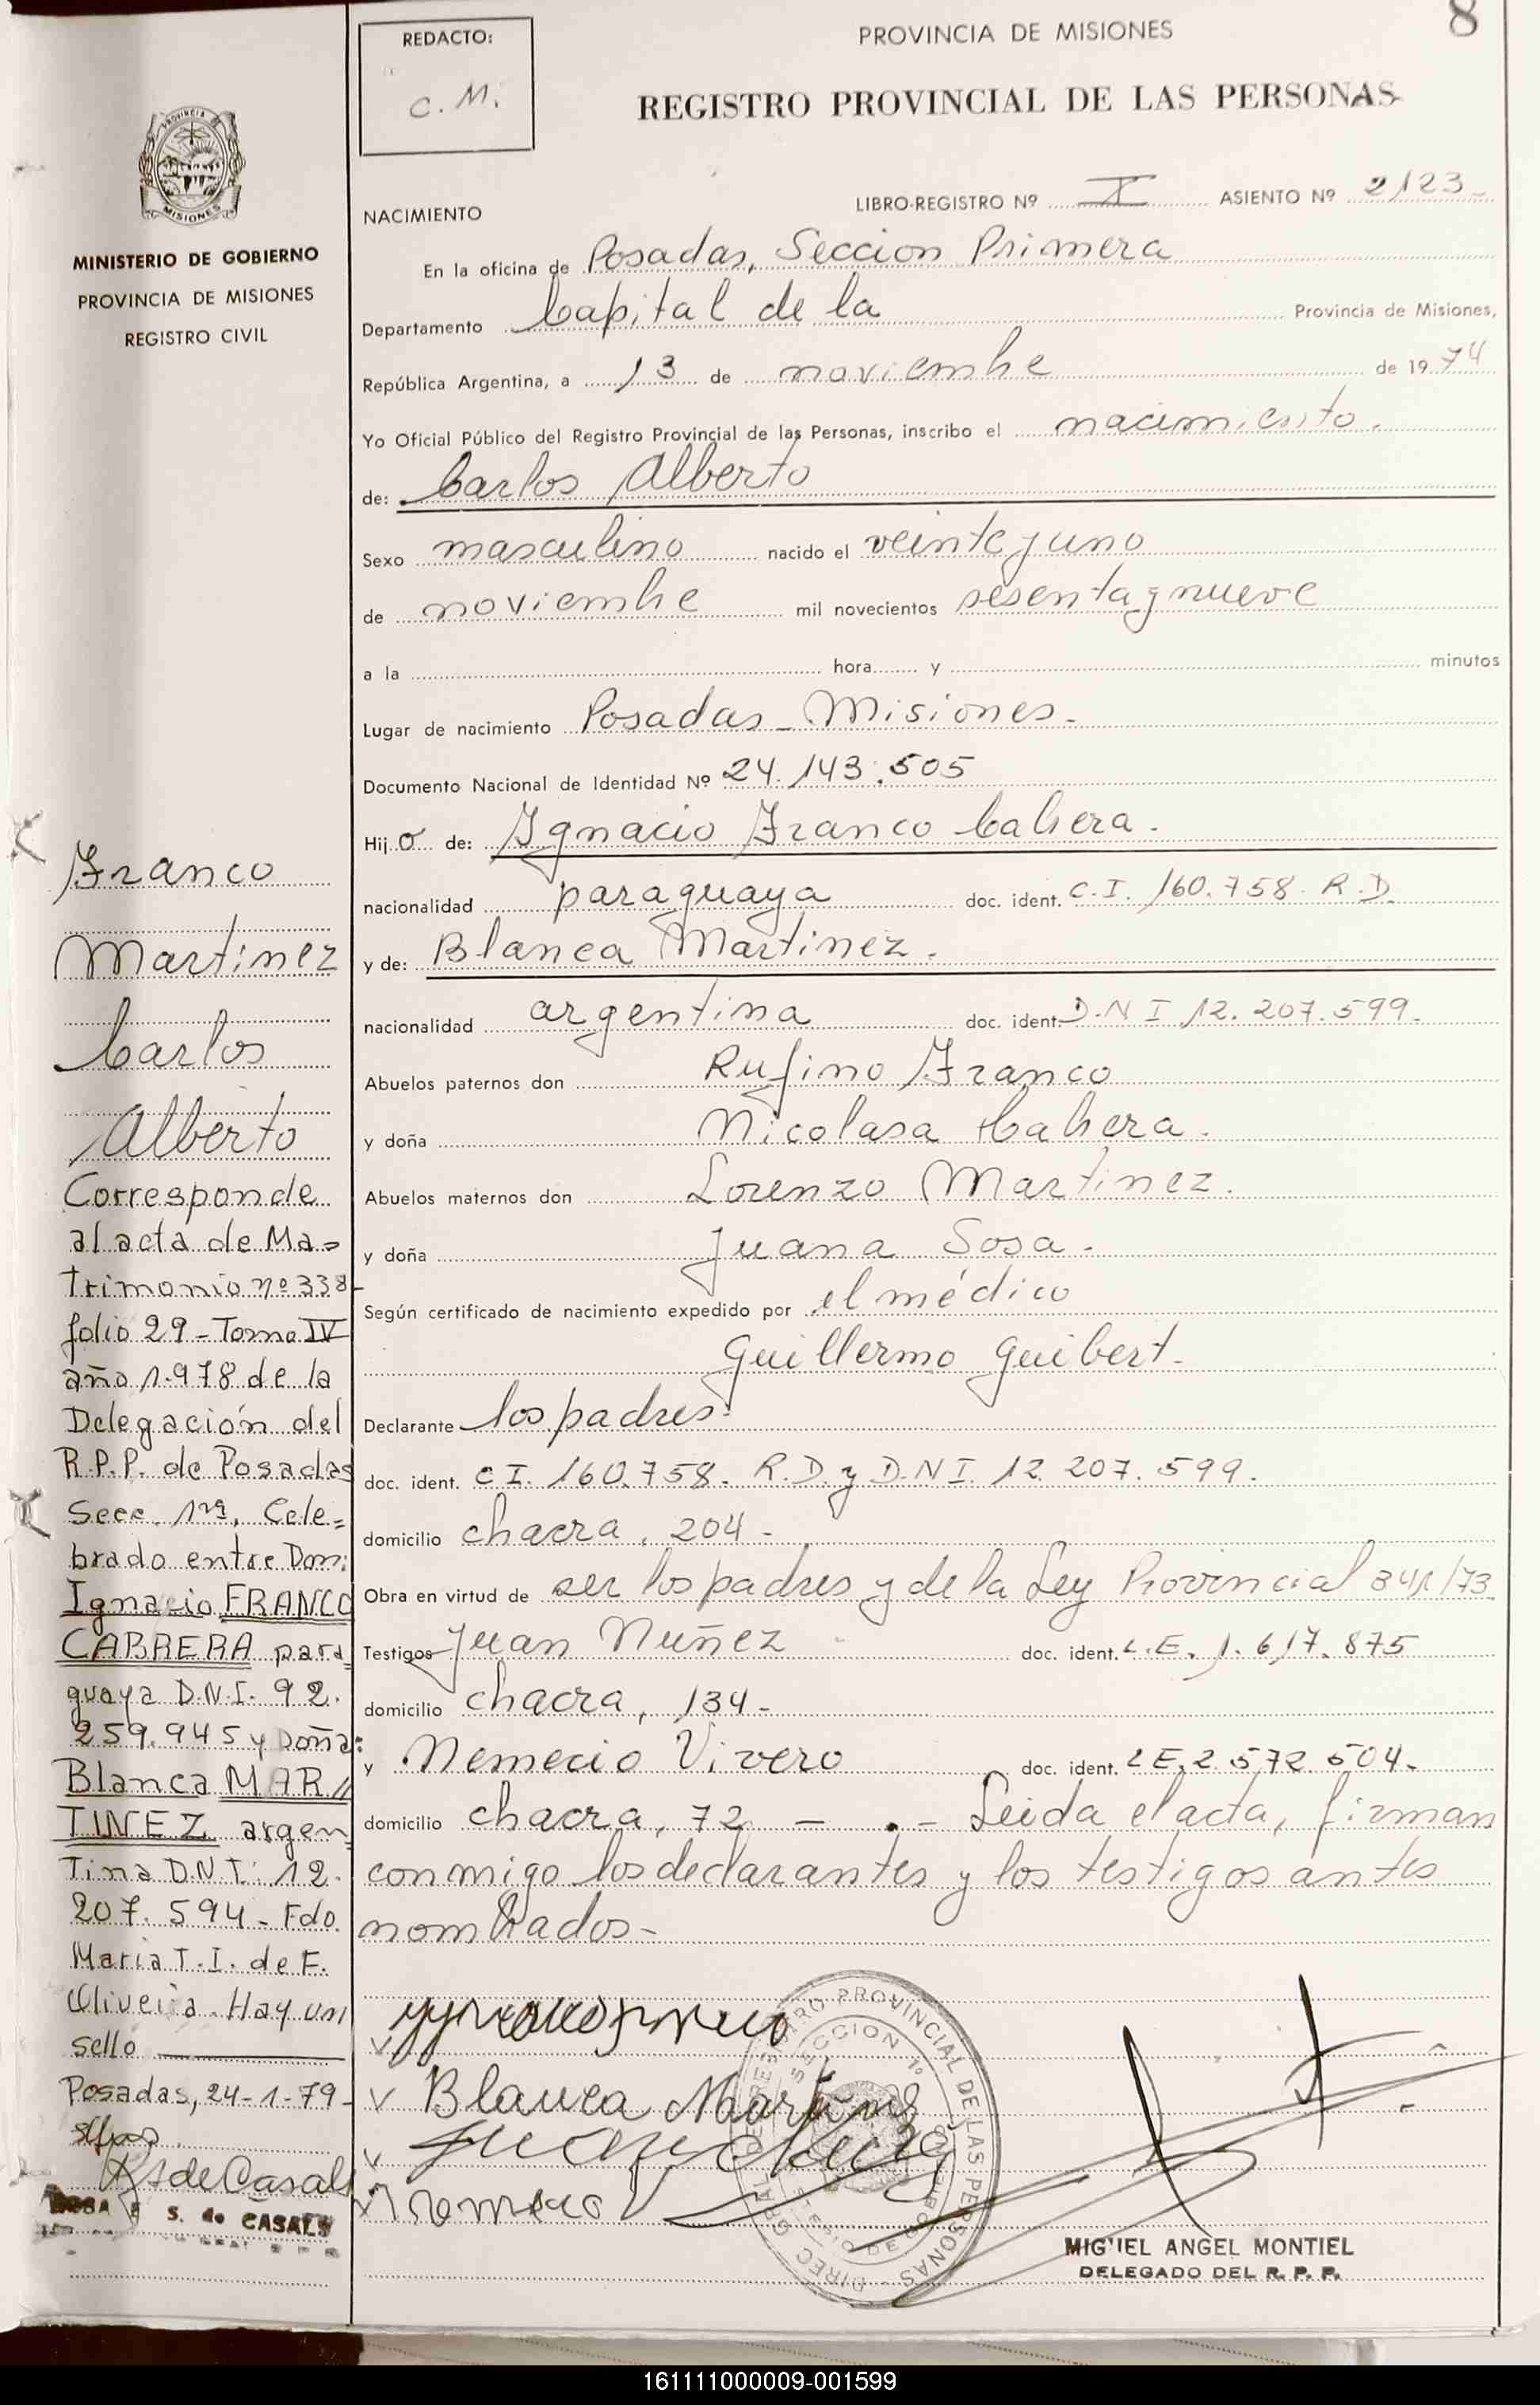 8
REDACTO:
C. M.
PROVINCIA DE MISIONES
REGISTRO PROVINCIAL DE LAS PERSONAS
PROVINCIA
MISIONES
MINISTERIO DE GOBIERNO
PROVINCIA DE MISIONES
REGISTRO CIVIL
NACIMIENTO
LIBRO-REGISTRO Nº X ASIENTO Nº 2123-
En la oficina de Posadas, Seccion Primera
Departamento Capital de la Provincia de Misiones,
República Argentina, a 13 de noviembre de 1974
Yo Oficial Público del Registro Provincial de las Personas, inscribo el nacimiento.
de: Carlos Alberto
Sexo masculino nacido el veinte y uno
de noviembre mil novecientos sesenta y nueve
a la hora y minutos
Lugar de nacimiento Posadas - Misiones-
Documento Nacional de Identidad Nº 24.143.505
Hijo de: Ygnacio Franco Cabrera.
nacionalidad paraguaya doc. ident. C.I. 160.758. R.D.
y de: Blanca Martinez.
nacionalidad argentina doc. ident. D.N I 12.207.599-
Abuelos paternos don Rufino Franco
y doña Nicolasa Cabrera.
Abuelos maternos don Lorenzo Martinez.
y doña Juana Sosa.
Según certificado de nacimiento expedido por el médico
Guillermo Guibert-
Declarante los padres-
doc. ident. C I. 160.758. R.D. y D.N I. 12.207.599.
domicilio chacra, 204-
Obra en virtud de ser los padres y de la Ley Provincial 341/73
Testigos Juan Nuñez doc. ident. L.E. 1.617.875
domicilio chacra, 134-
y Nemecio Vivero doc. ident. L E. 2.572.504-
domicilio chacra, 72 - . - Leida el acta, firman
conmigo los declarantes y los testigos antes
nombrados-
Franco
Martinez
Carlos
Alberto
Corresponde
al acta de Ma=
trimonio nº 338-
folio 29 - Tomo IV
año 1.978 de la
Delegación del
R.P.P. de Posadas
Secc. 1ra, Cele=
brado entre Don:
Ignacio FRANCO
CABRERA para
guaya D.N.I. 92.
259.945 y Doña:
Blanca MAR//
TINEZ argen
Tina D.N.I: 12.
207.594 - Fdo.
Maria T. I. de F.
Oliveira. Hay un
sello
Posadas, 24-1-79-
S. de CASALS
Blanca Martinez
Juan Nuñez
Nemecio V
REGISTRO PROVINCIAL DE LAS PERSONAS
SECCION 1º
MIGUEL ANGEL MONTIEL
DELEGADO DEL R. P. P.
161111000009-001599